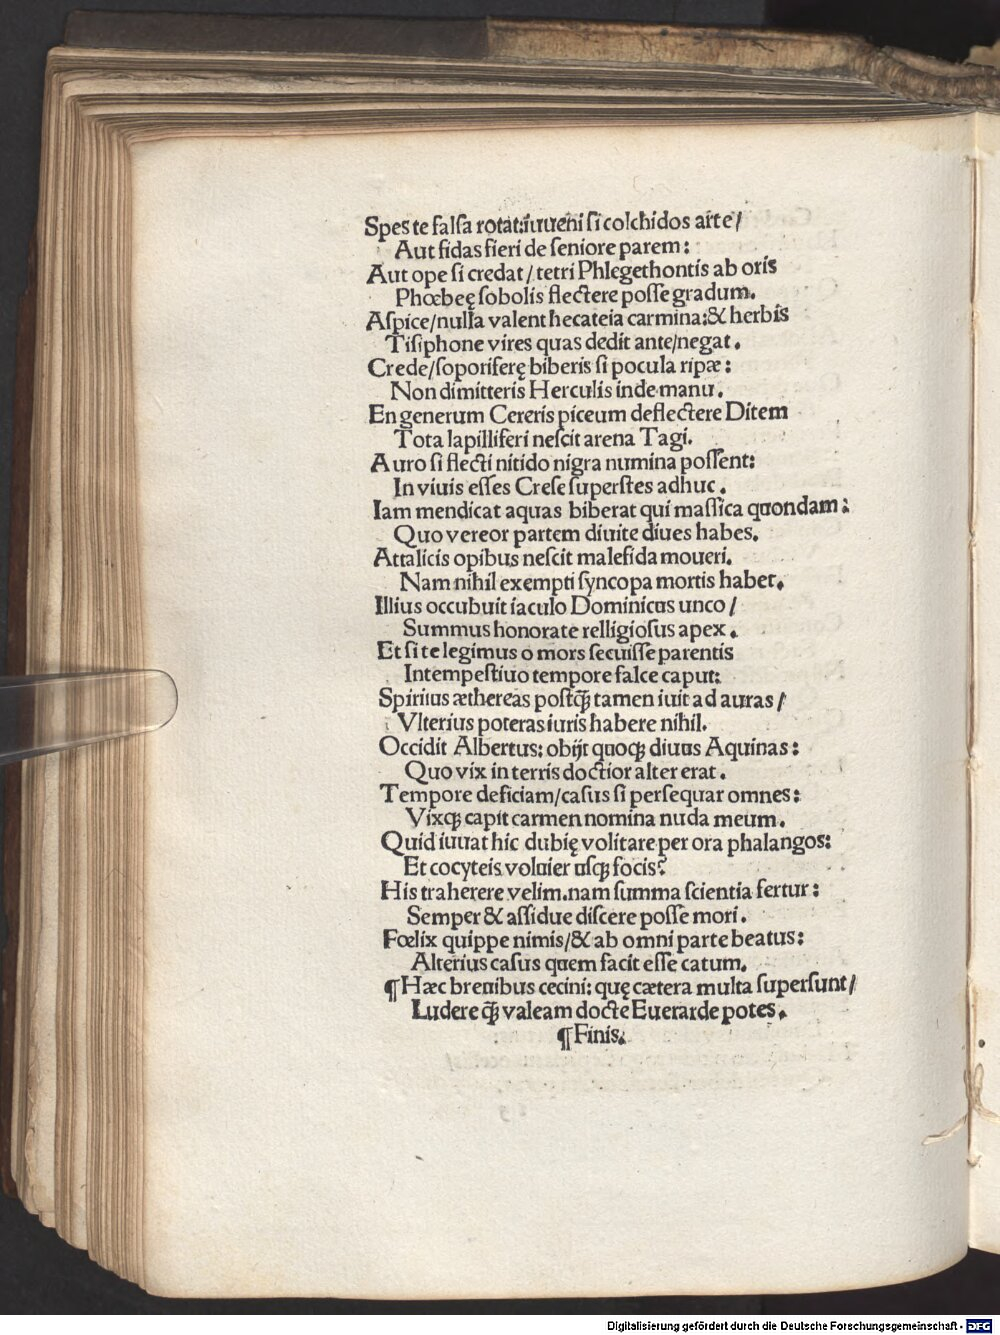 Spes te falsa rotat:iuueni si colchidos arte/
Aut fidas fieri de seniore parem:
Aut ope si credat/tetri Phlegethontis ab oris
Phœbeę sobolis flectere posse gradum.
Aspice/nulla valent hecateia carmina:& herbis
Tisiphone vires quas dedit ante/negat.
Crede/soporiferę biberis si pocula ripæ:
Non dimitteris Herculis inde manu.
En generum Cereris piceum deflectere Ditem
Tota lapilliferi nescit arena Tagi.
Auro si flecti nitido nigra numina possent:
In viuis esses Crese superstes adhuc.
Iam mendicat aquas biberat qui massica quondam:
Quo vereor partem diuite diues habes.
Attalicis opibus nescit malefida moueri.
Nam nihil exempti syncopa mortis habet.
Illius occubuit iaculo Dominicus unco/
Summus honorate relligiosus apex.
Et si te legimus o mors secuisse parentis
Intempestiuo tempore falce caput:
Spiritus æthereas postq̃ tamen iuit ad auras/
Vlterius poteras iuris habere nihil.
Occidit Albertus: obijt quoqꝫ diuus Aquinas:
Quo vix in terris doctior alter erat.
Tempore deficiam/casus si persequar omnes:
Vixqꝫ capit carmen nomina nuda meum.
Quid iuuat hic dubię volitare per ora phalangos:
Et cocyteis voluier usqꝫ focis?
His traherere velim.nam summa scientia fertur:
Semper & assidue discere posse mori.
Fœlix quippe nimis/& ab omni parte beatus:
Alterius casus quem facit esse catum.
¶Hæc breuibus cecini: quę cætera multa supersunt/
Ludere q̃ valeam docte Euerarde potes.
¶Finis.
Digitalisierung gefördert durch die Deutsche Forschungsgemeinschaft - DFG